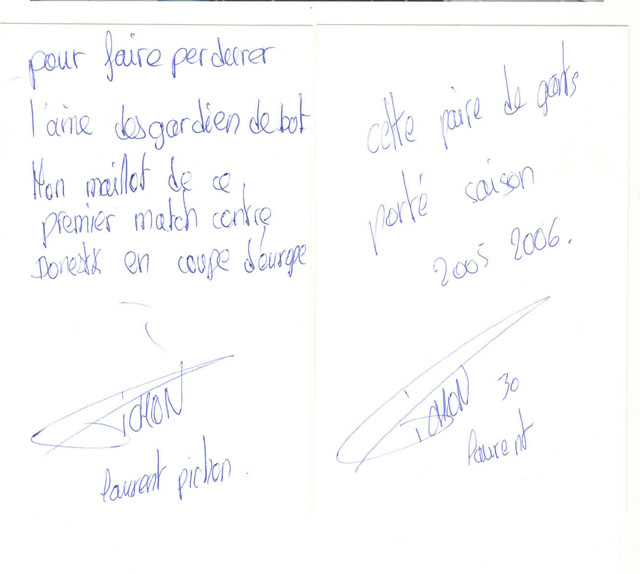 pour faire perdurer
l'âme des gardien de but
Mon maillot de ce
premier match contre
Donetsk en coupe d'europe
PICHON
laurent pichon.
cette paire de gants
porté saison
2005 2006.
PICHON 30
laurent